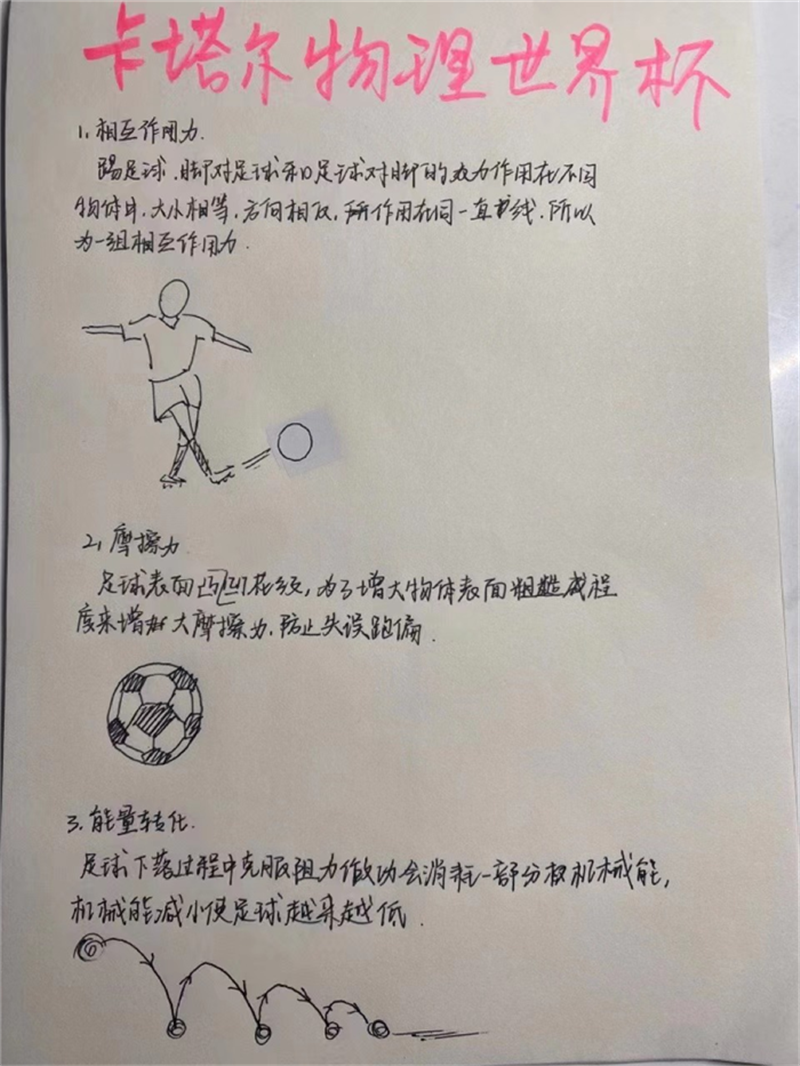 卡塔尔物理世界杯
1、相互作用力.
踢足球,脚对足球和足球对脚的力作用在不同
物体中,大小相等,方向相反,作用在同一直线,所以
为一组相互作用力.
2、摩擦力
足球表面凹凸花纹,为了增大物体表面粗糙程
度来增大摩擦力,防止失误跑偏.
3.能量转化.
足球下落过程中克服阻力做功会消耗一部分机械能,
机械能减小使足球越来越低.